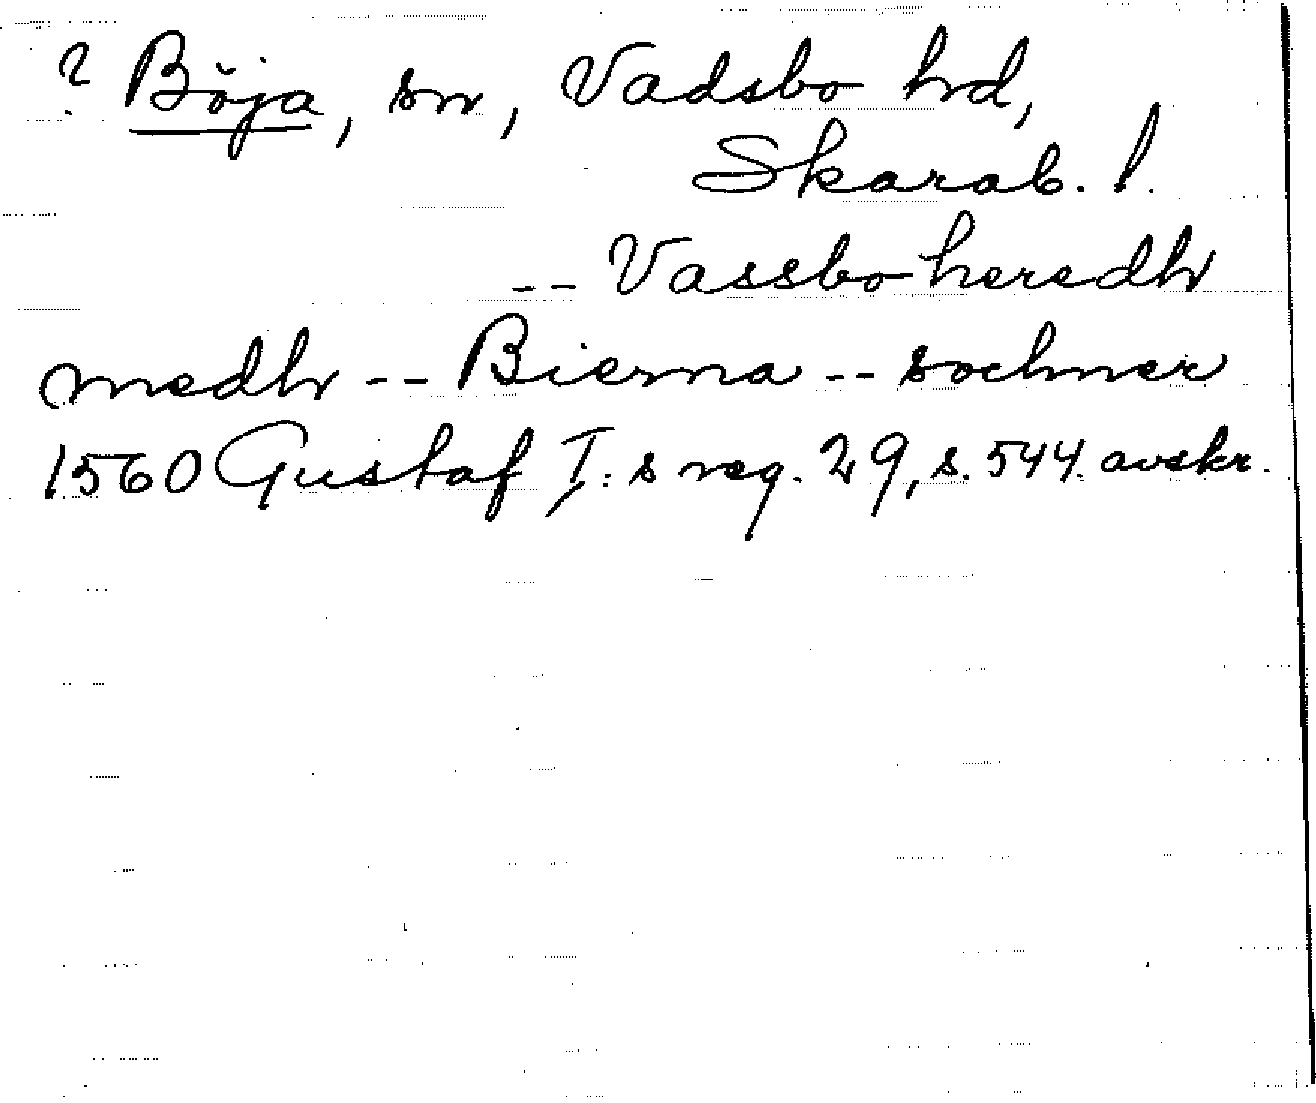 ? Böja, sn, Vadsbo hd,
Skarab. l.
-- Vassbo heredh
medh -- Bierna -- sochner
1560 Gustaf I:s reg. 29, s. 544. avskr.